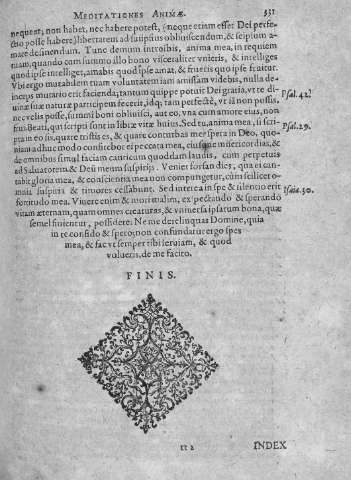 MEDITATIONES ANIMÆ. 331
nequeat; non habet, nec habere potest, (neque etim esset Dei perfe-
ctio posse habere) libertatem ad sui ipsius obliuiscendum, & se ipsum a-
mare desinendum. Tunc demum introibis, anima mea, in requiem
tuam, quando cum summo illo bono visceraliter vnieris, & intelliges
quod ipse intelligit, amabis quod ipse amat, & frueris quo ipse fruitur.
Vbi ergo mutabilem tuam voluntatem iam amissam videbis, nulla de-
inceps mutatio erit facienda; tantum quippe potuit Dei gratia, vt te di-
uinæ suæ naturæ participem fecerit, idq; tam perfectè, vt iã non possis,
nec velis posse, summi boni obliuisci, aut eo, vna cum amore eius, non
frui. Beati, qui scripti sunt in libro vitæ huius. Sed tu, anima mea, si scri-
pta in eo sis, quare tristis es, & quare conturbas me? spera in Deo, quo-
niam adhuc modo confitebor ei peccata mea, eiusque misericordias, &
de omnibus simul faciam canticum quoddam laudis, cum perpetuis
ad Saluatorem & Deum meum suspirijs. Veniet forsan dies, qua ei can-
tabit gloria mea, & conscientia mea non compungetur, cùm scilicet o-
mnia suspiria & timores cessabunt. Sed interea in spe & silentio erit
fortitudo mea. Viuere enim & mori malim, expectando & sperando
vitam æternam, quam omnes creaturas, & vniuersa ipsarum bona, quæ
semel finientur, possidere. Ne me derelinquas Domine, quia
in te confido & spero; non confundatur ergo spes
mea, & fac vt semper tibi seruiam, & quod
volueris, de me facito.
Psal. 42.
Psal. 29.
Isaiæ. 30.
FINIS.
tt 2 INDEX